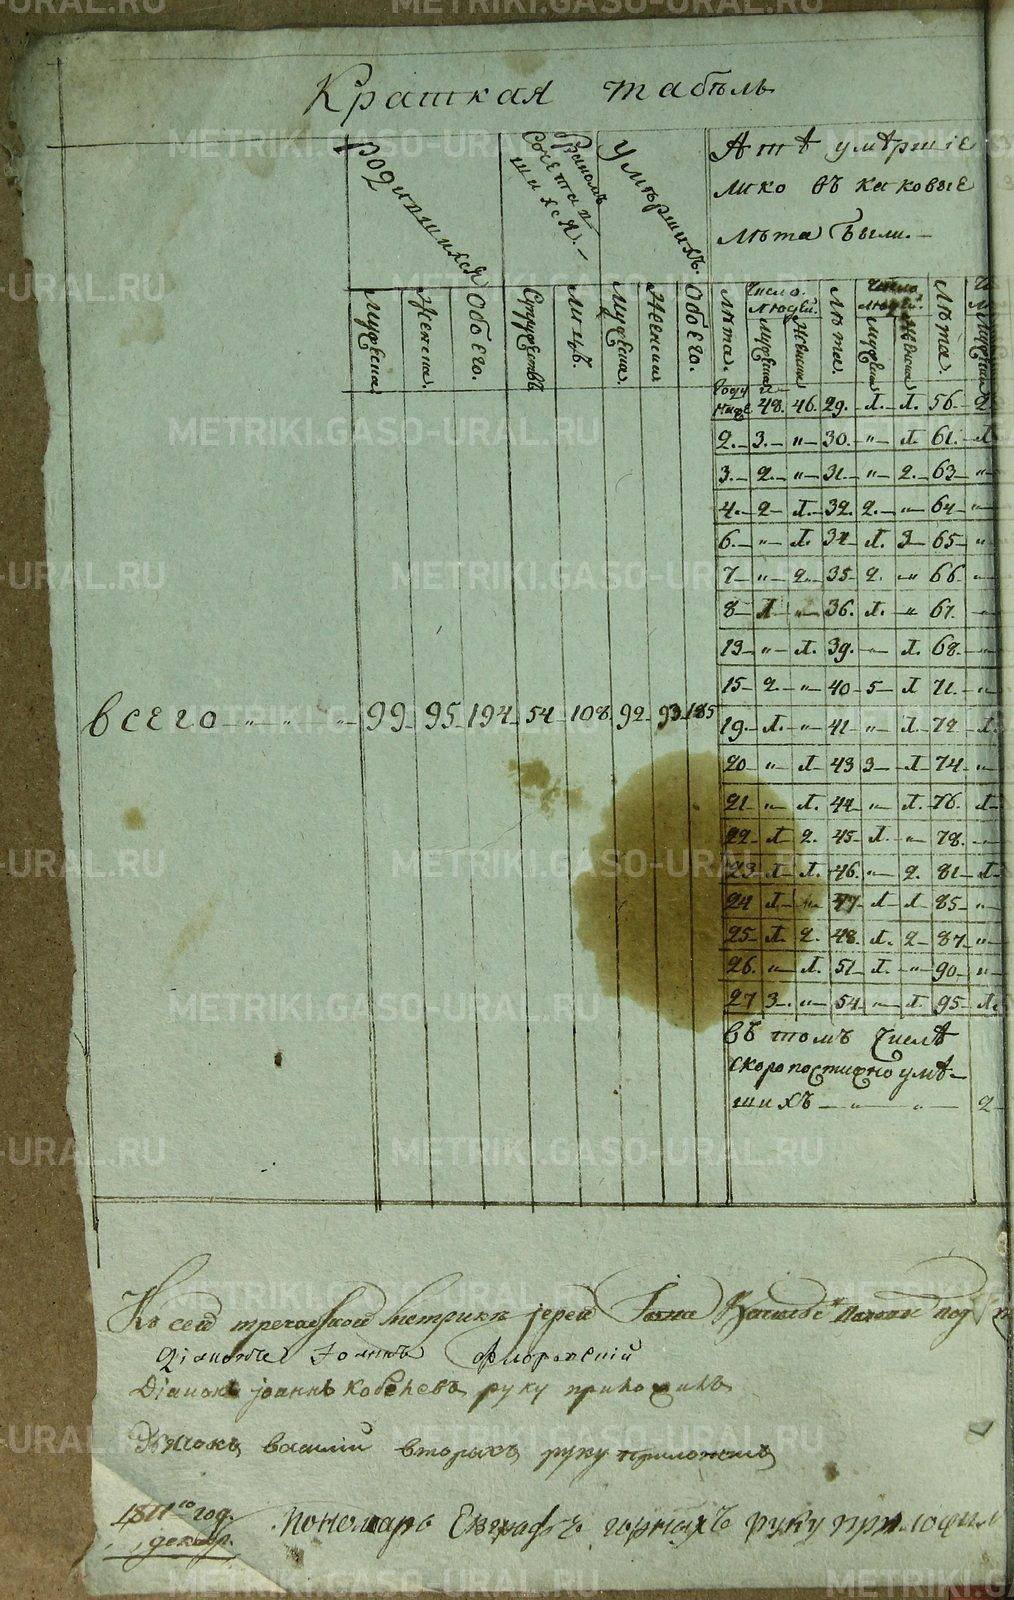 Краткая табѣль
Родившихся
Бракомъ Сочетавшихся.
Умершихъ.
А тѣ умѣршіе
лико въ каковые
лѣта были.
Мужеска.
Женска.
Обоего.
Супружествъ
Лицъ.
Мужеска.
Женски
Обоего.
Лѣта.
Число людей.
Мужеска
Женска
Лѣта.
Число людей.
Мужеска
Женска
Лѣта.
году ниже 48. 46. 29. 1. 1. 56. 2
2. 3. " 30. " 1 61. 1
3. 2. " 31. " 2. 63 "
4. 2 1. 32. 2. " 64 "
6. " 1. 34 1. 3 65 "
7 " 2. 35 2. " 66 "
8 1 " 36. 1. " 67. "
13 " 1. 39. " 1. 68. "
15 2. " 40 5 1 71. "
всего " " " 99. 95. 194. 54. 108. 92. 93. 185
19. 1. " 41 " 1. 72 1.
20 " 1 43 3 1 74. "
21 " 1. 44 " 1. 76. 1
22 1 2. 45 1. " 78. "
23 1 1. 46. " 2. 81 1
24 1 " 47 1 1 85 "
25 1. 2. 48. 1. 2 87 "
26. " 1. 51 1. " 90 "
27 3. " 54 " 1. 95 1.
въ томъ числѣ
скоропостижно умѣ-
шихъ " " 2
Къ сей метрикѣ іерей под
Діаконъ Іоаннъ Флоровскій
Діаконъ іоаннъ кобѣневъ руку приложилъ
Дьячокъ василій вторыхъ руку приложилъ
Пономарь Евграфъ горныхъ руку приложил
1811го год.
декабр.